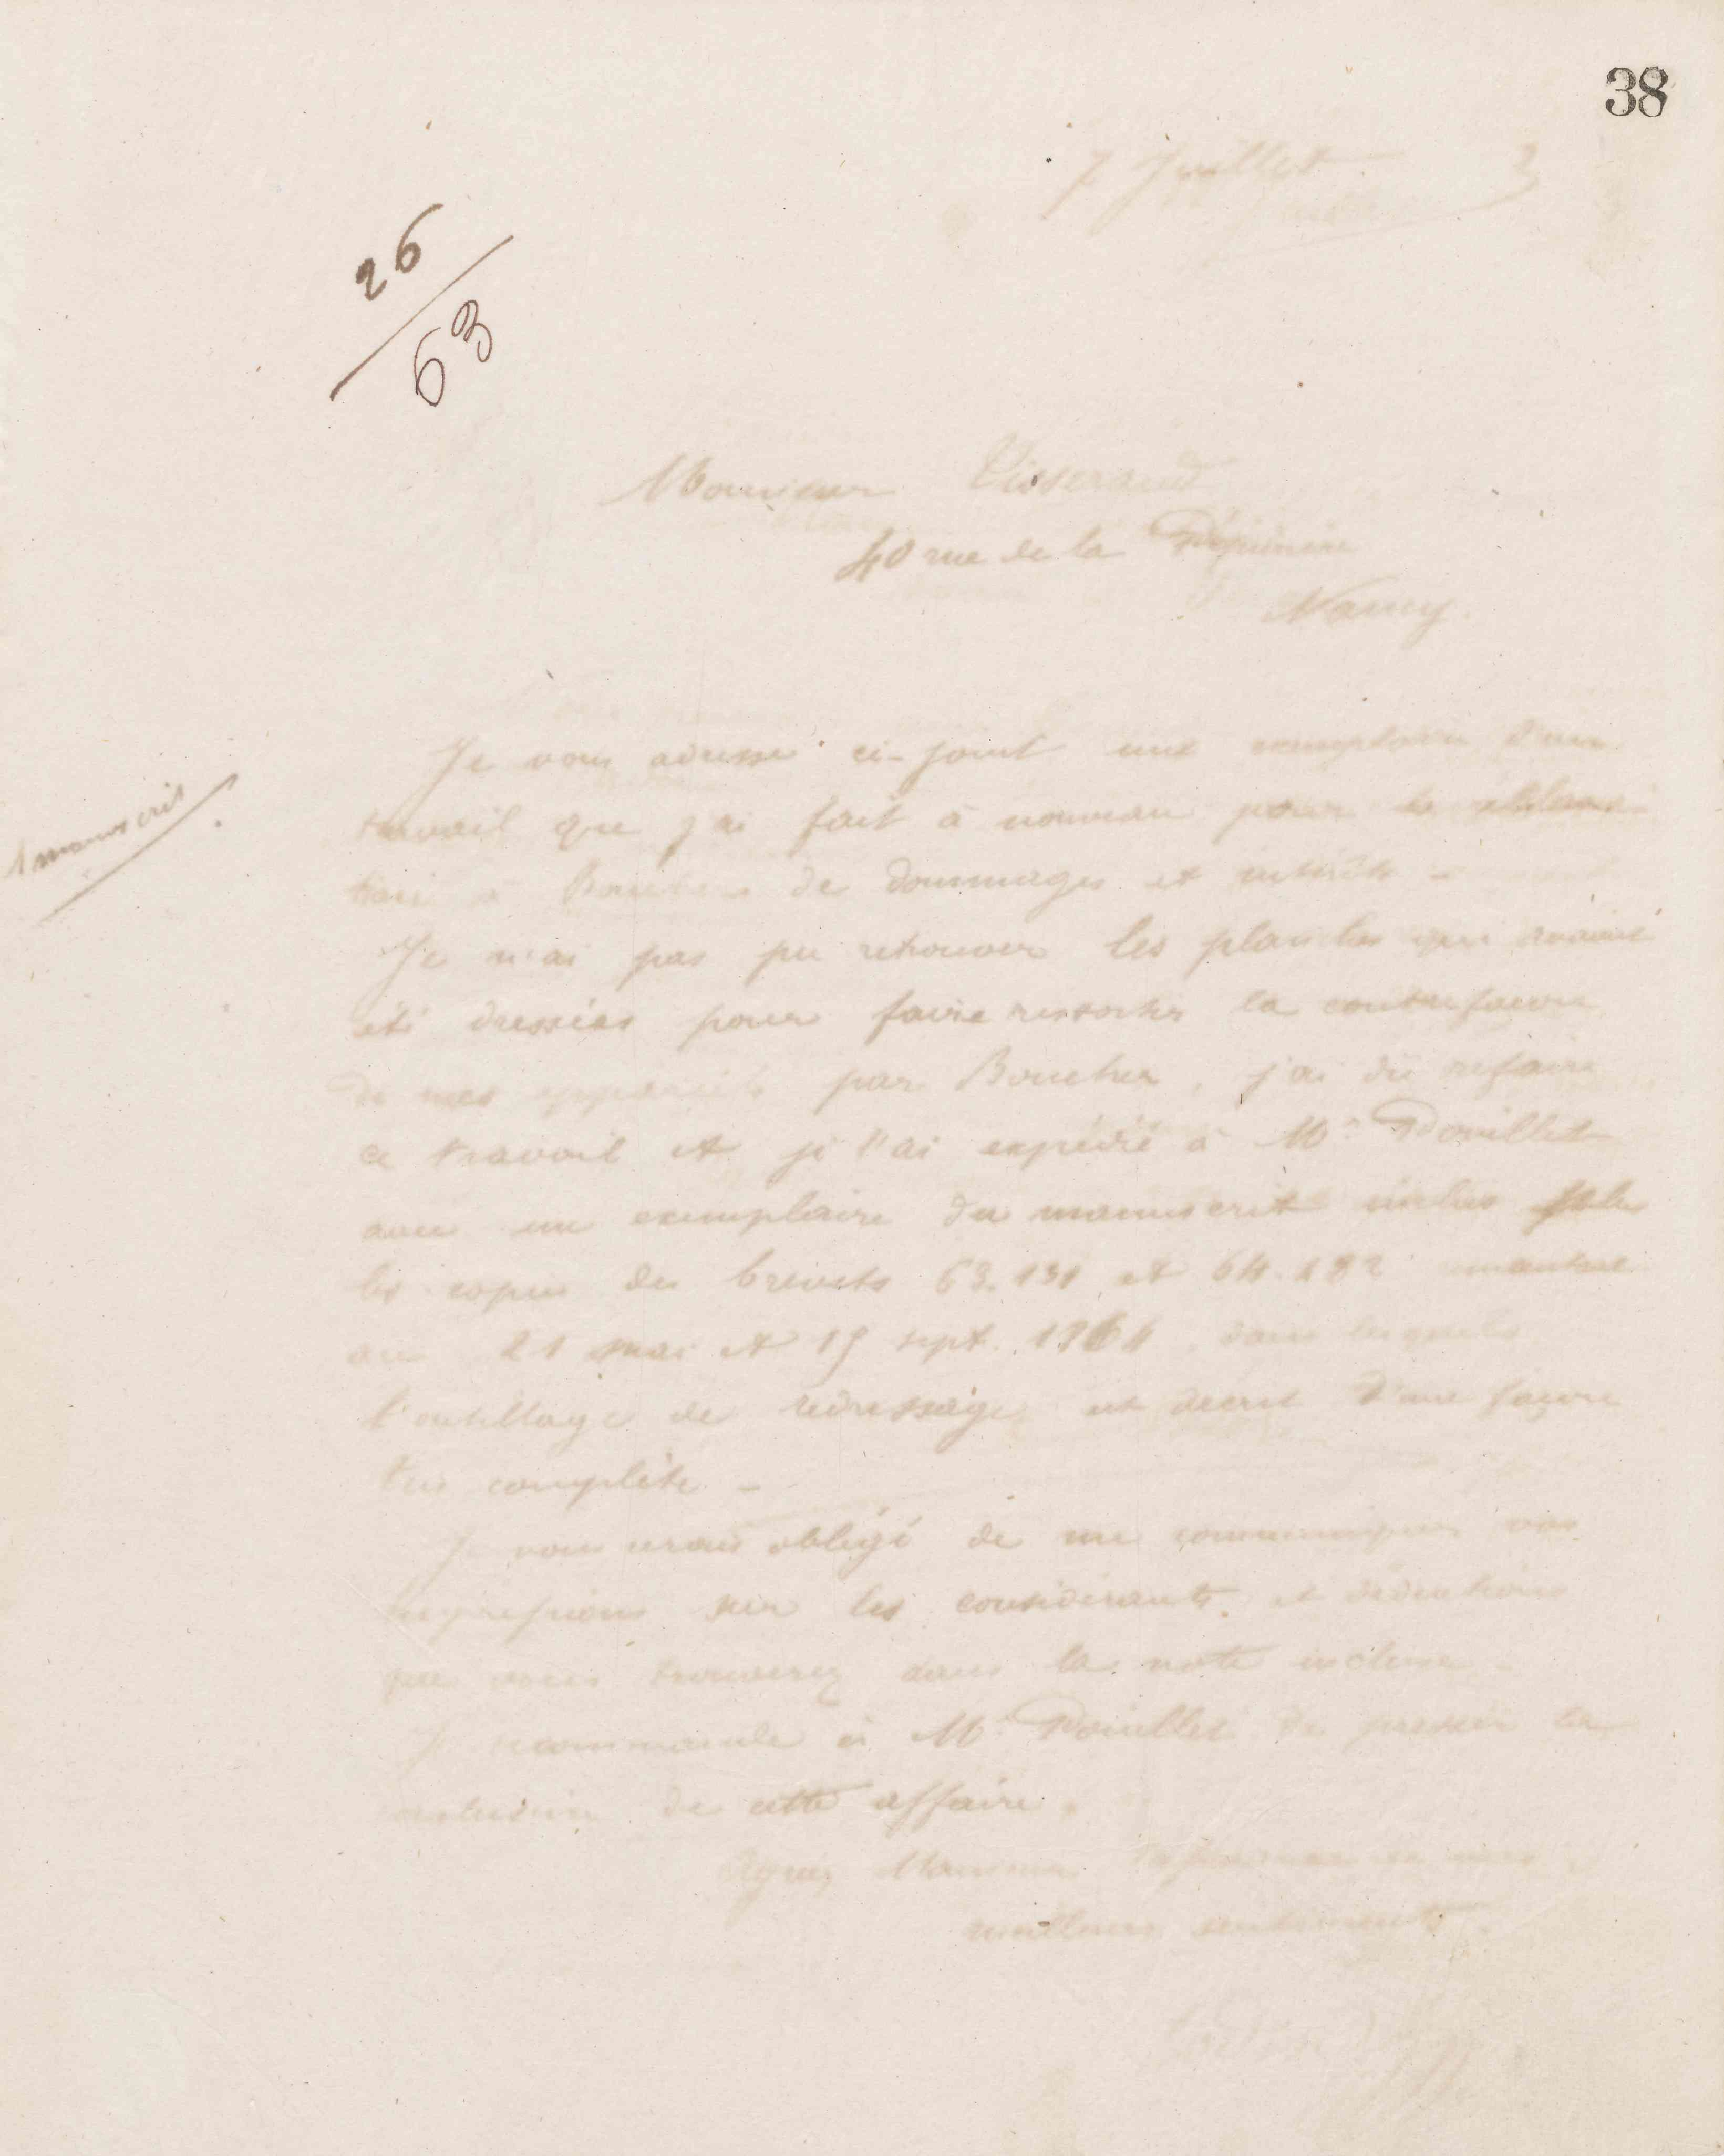 38
7 Juillet 3
26
63
Monsieur Tisserand
40 rue de la Pépinière
Nancy.
1 manuscrit
Je vous adresse ci-joint une exemplaire d'un
travail que j'ai fait à nouveau pour la
à Boucher de dommages et intérêts -
Je n'ai pas pu retrouver les planches qui avaient
été dressées pour faire ressortir la contrefaçon
de mes appareils par Boucher, j'ai dû refaire
ce travail et je l'ai expédié à Mr Pouillet
avec un exemplaire du manuscrit inclus
les copies des brevets 63.131 et 64.182
au 21 mai et 15 sept. 1864, dans lesquels
l'outillage de redressage est décrit d'une façon
très complète -
Je vous serais obligé de me communiquer vos
impressions sur les considérants et déductions
que vous trouverez dans la note incluse -
Je recommande à Mr Pouillet de presser la
de cette affaire.
Agréez Monsieur l'assurance de mes
meilleurs sentiments